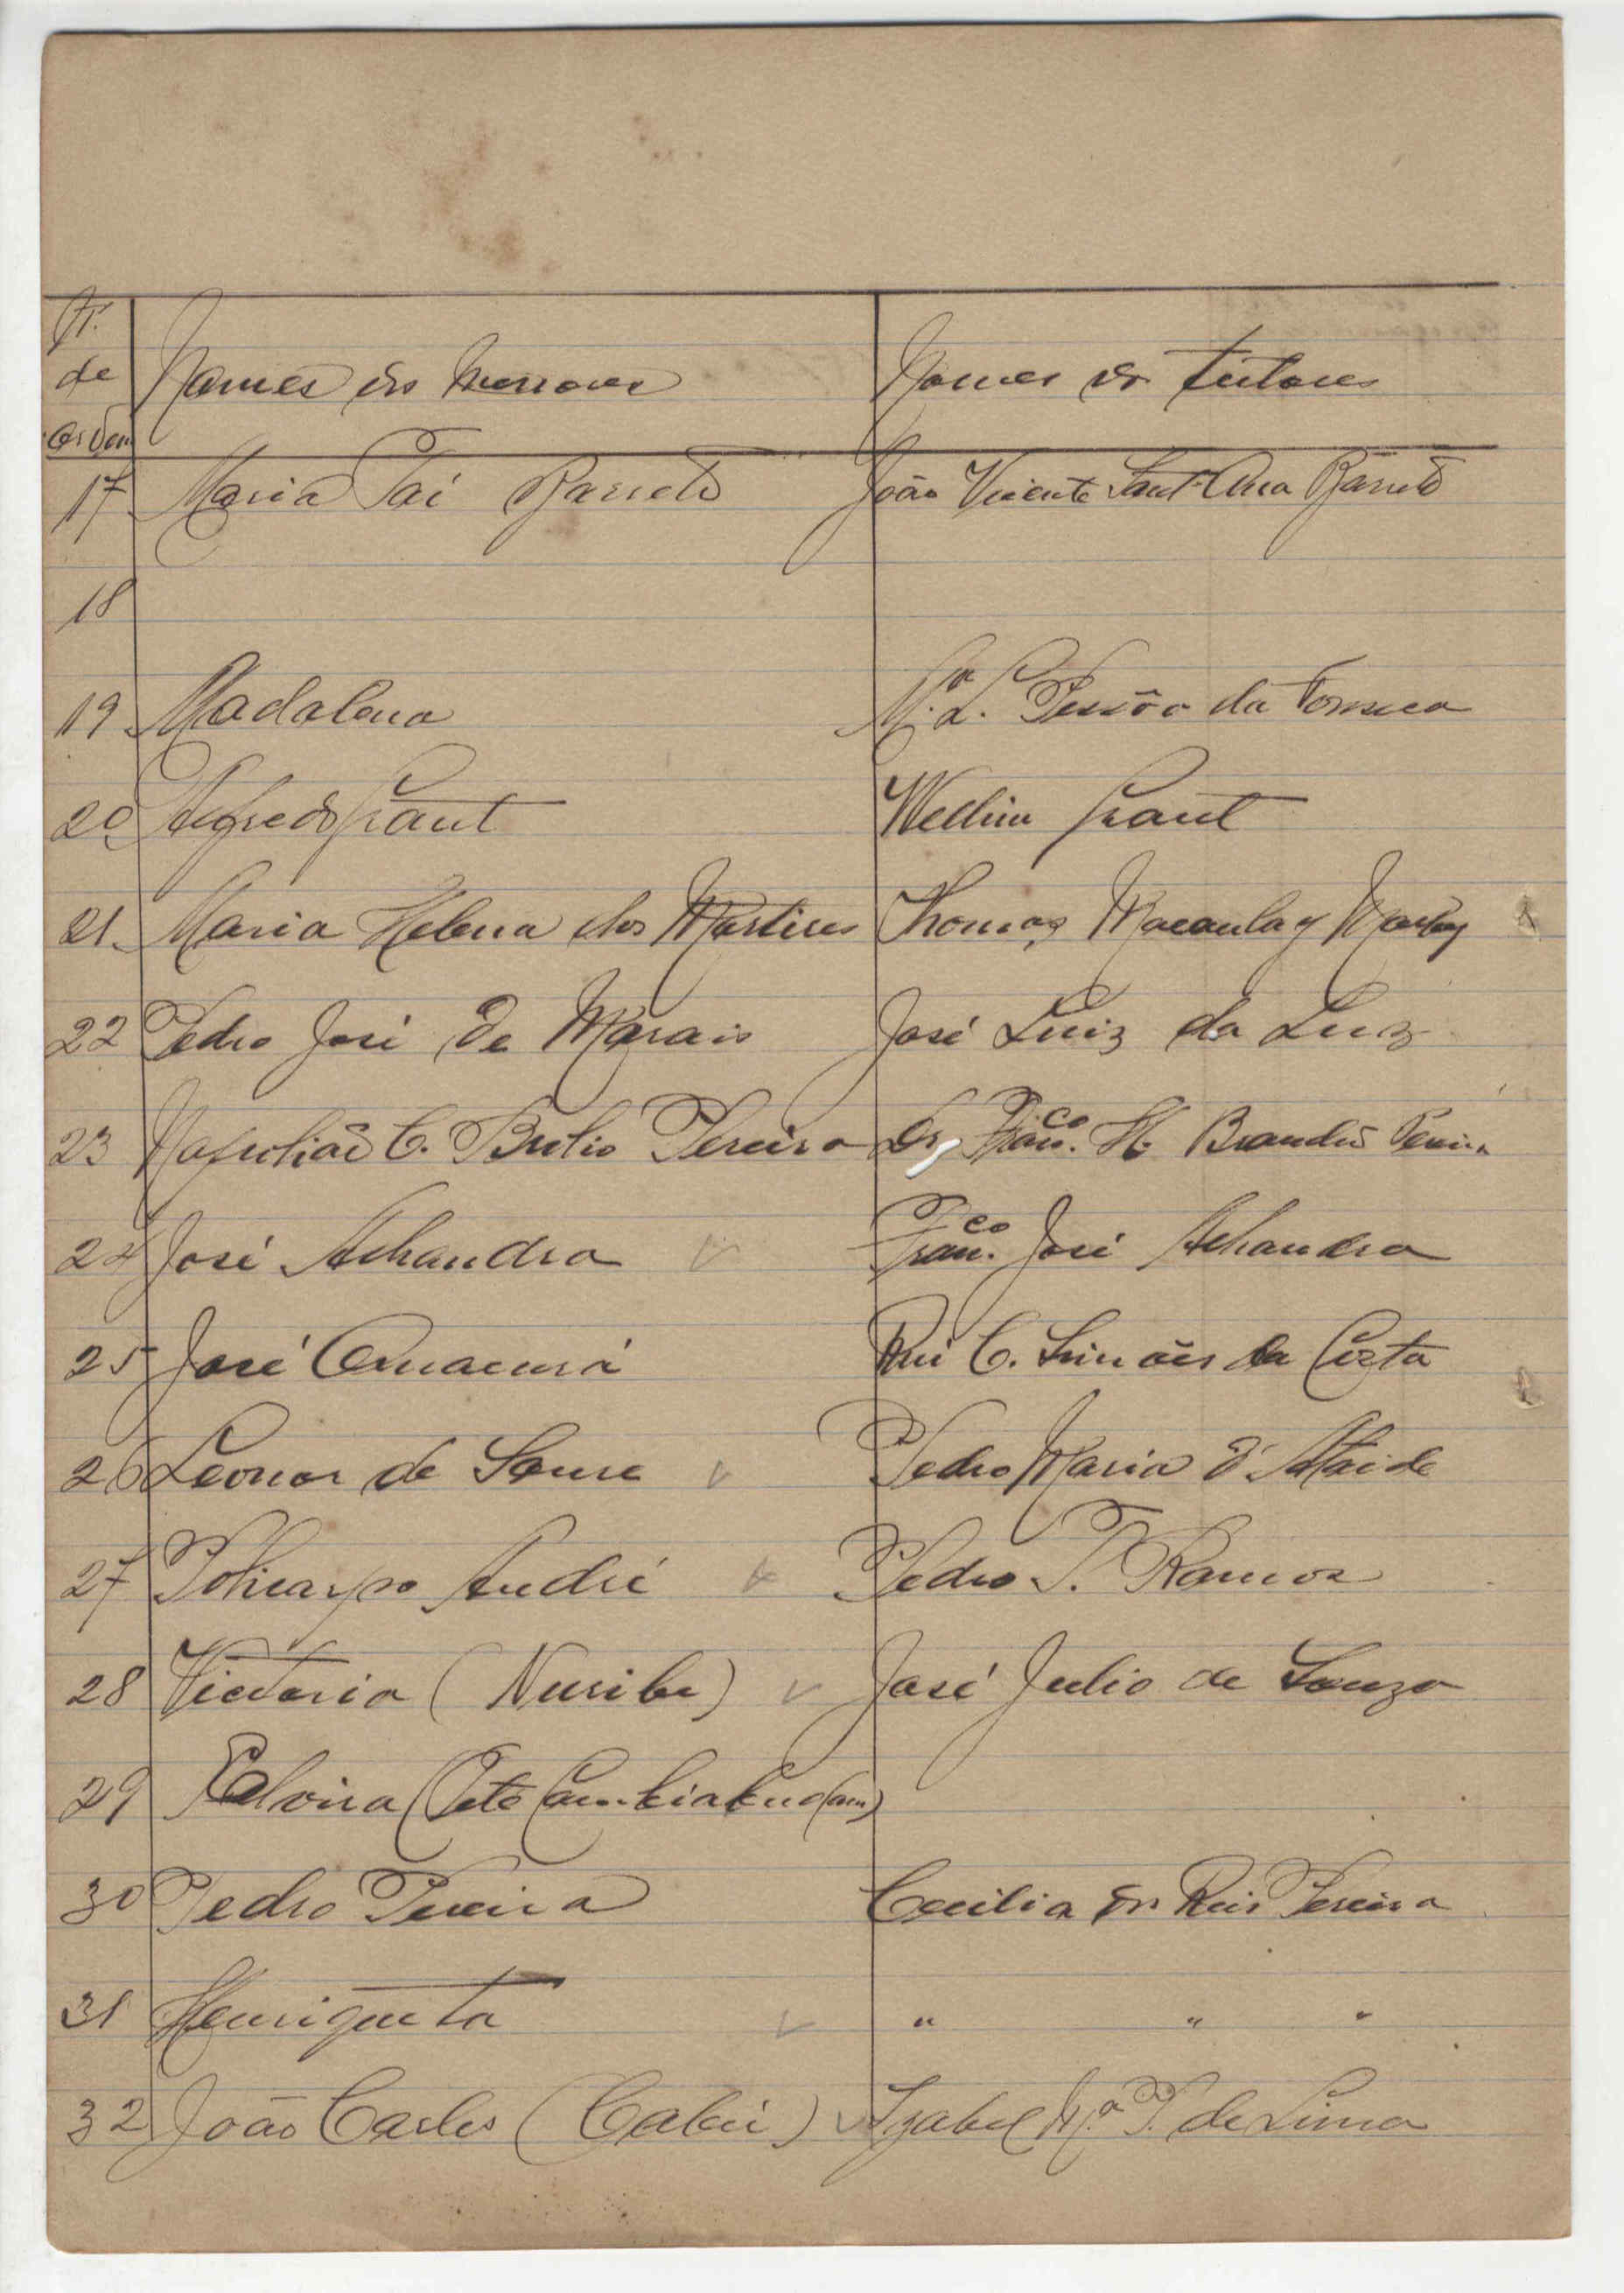 N.
de
Ordem
Nomes dos menores
Nomes dos tutores
17 Maria Taí Barreto João Vicente Sant'Ana Barreto
18
19 Madalena M.ª L. Pessôa da Fonseca
20 Alfredo Grant Grant
21 Maria Helena dos Martires Thomas Macaulay
22 Pedro José de Morais José Luiz da Luz
23 Napolião C. Pereira Dr. Fran.co H. Brandão Pereira
24 José Achandra v Fran.co José Achandra
25 José Rui C. Simões da Costa
26 Leonor de v Pedro Maria d'Ataide
27 Policarpo André v Pedro T. Ramos
28 Victoria ( ) v José Julio de Souza
29 Elvira
30 Pedro Pereira Cecilia dos Reis Pereira
31 Henriqueta v " " "
32 João Carlos ( ) v Izabel M.ª P. de Lima